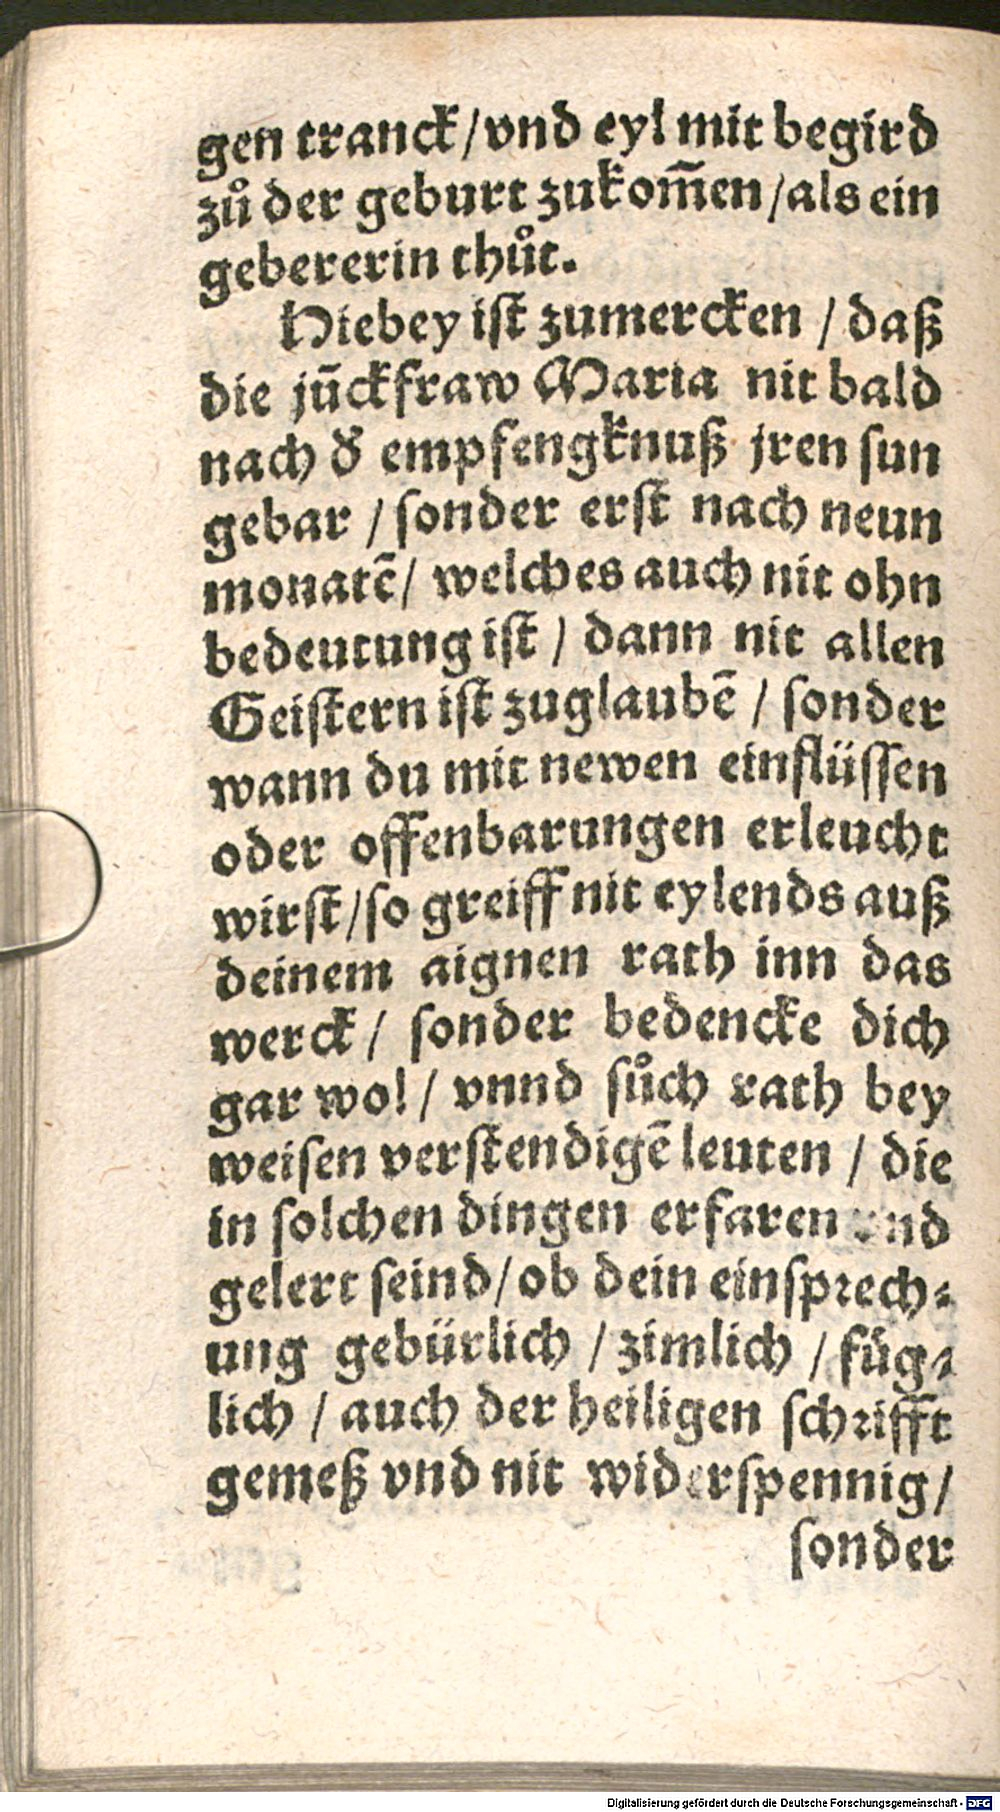 gen tranck/vnd eyl mit begird
zuͦ der geburt zukom̃en/als ein
gebererin thuͦt.
Hiebey ist zumercken / daß
die jũckfraw Maria nit bald
nach đ empfengknuß jren sun
gebar / sonder erst nach neun
monatẽ/ welches auch nit ohn
bedeutung ist / dann nit allen
Geistern ist zuglaubẽ / sonder
wann du mit newen einflüssen
oder offenbarungen erleucht
wirst/so greiff nit eylends auß
deinem aignen rath inn das
werck / sonder bedencke dich
gar wol / vnnd suͦch rath bey
weisen verstendigẽ leuten / die
in solchen dingen erfaren vnd
gelert seind/ob dein einsprech⸗
ung gebürlich / zimlich / füg⸗
lich / auch der heiligen schrifft
gemeß vnd nit widerspennig/
sonder
Digitalisierung gefördert durch die Deutsche Forschungsgemeinschaft - DFG